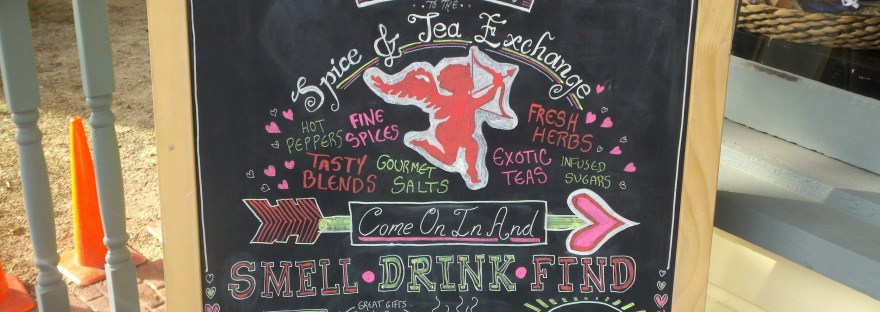 TO THE...
Spice & Tea Exchange
HOT PEPPERS
FINE SPICES
FRESH HERBS
TASTY BLENDS
GOURMET SALTS
EXOTIC TEAS
INFUSED SUGARS
Come On In And
SMELL • DRINK • FIND
GREAT GIFTS